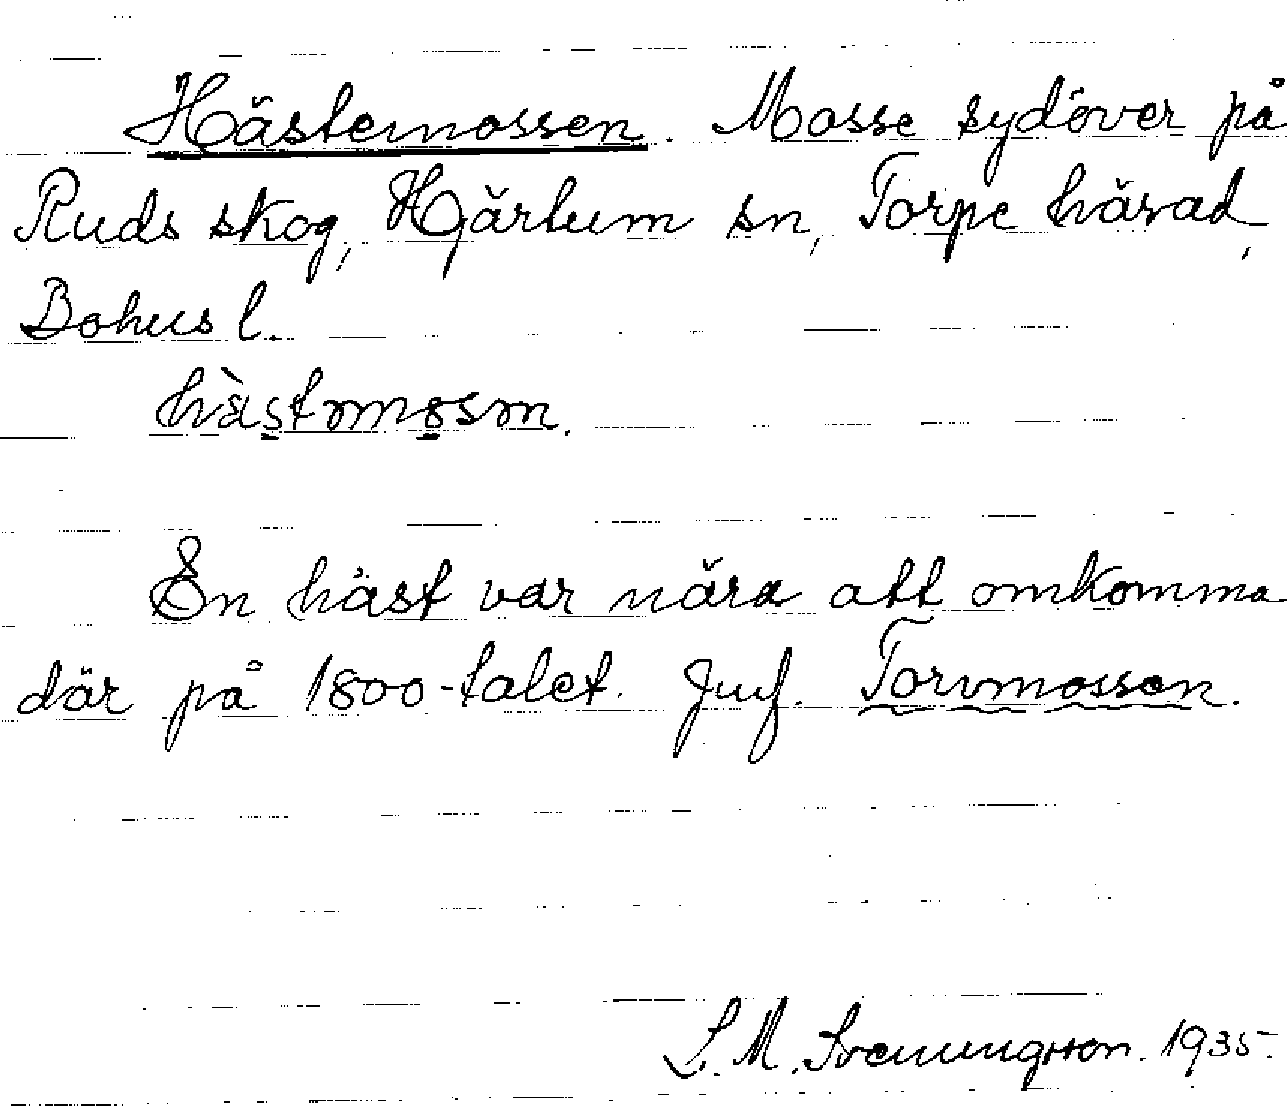 Hästemossen. Mosse sydöver på
Ruds skog, Hjärtum sn, Torpe härad,
Bohus l.
hàstmosm.
En häst var nära att omkomma
där på 1800-talet. Jmf. Torvmossen.
S. M. Svenungsson. 1935.